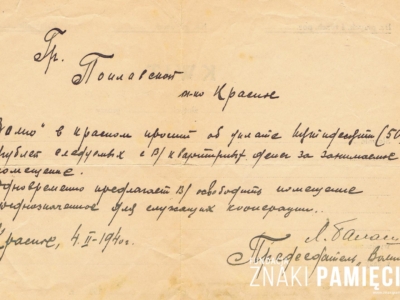 Гр.
Поплавской
м-ко Красное
в Красном просит об уплате пятидесяти (50
рублей следуемых с В/ квартирных денег за занимаемое
помещение.
одновременно предлагает В/ освободить помещение
предназначенное для служащих кооперации.
Красное, 4.II-1940г.
Председатель
ZNAKI PAMIĘCI